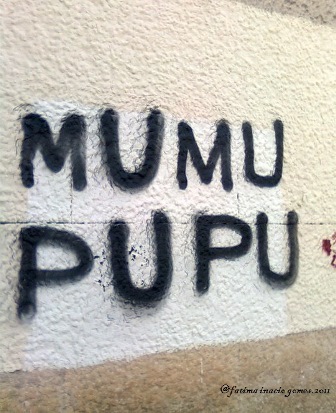 MUMU
PUPU
@fatima inacio gomes.2011